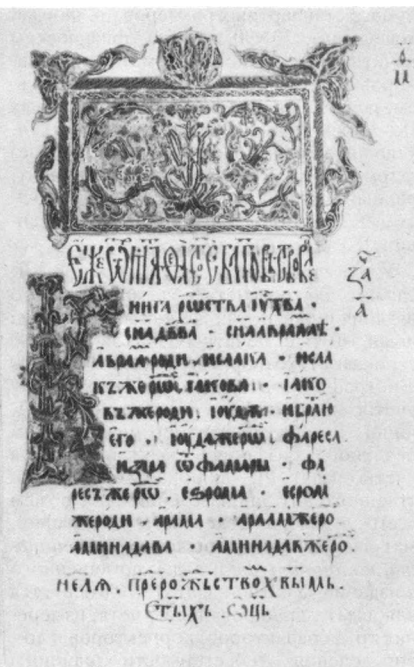 Еже ѿ Матѳеа ст҃ое блговѣствованїе
Книга рѡства і҃у х҃ва ·
с҃на дв҃два · с҃на авраамлѣ ·
Авраамъ роди исаака · иса
къ же рѡⷣ іакова · іако
въ же роди іоудѫ и братїю
его · іоуда же рѡⷣ фареса
и зара ѿ фамары · фа
ресъ же рѡⷣ есрома · есром
же роди арама · арам же ро
аминадава · аминадав же ро
неⷣлѧ прⷣе рожьствоⷨ х҃выⷨ
ст҃ыхъ ѻ҃ць